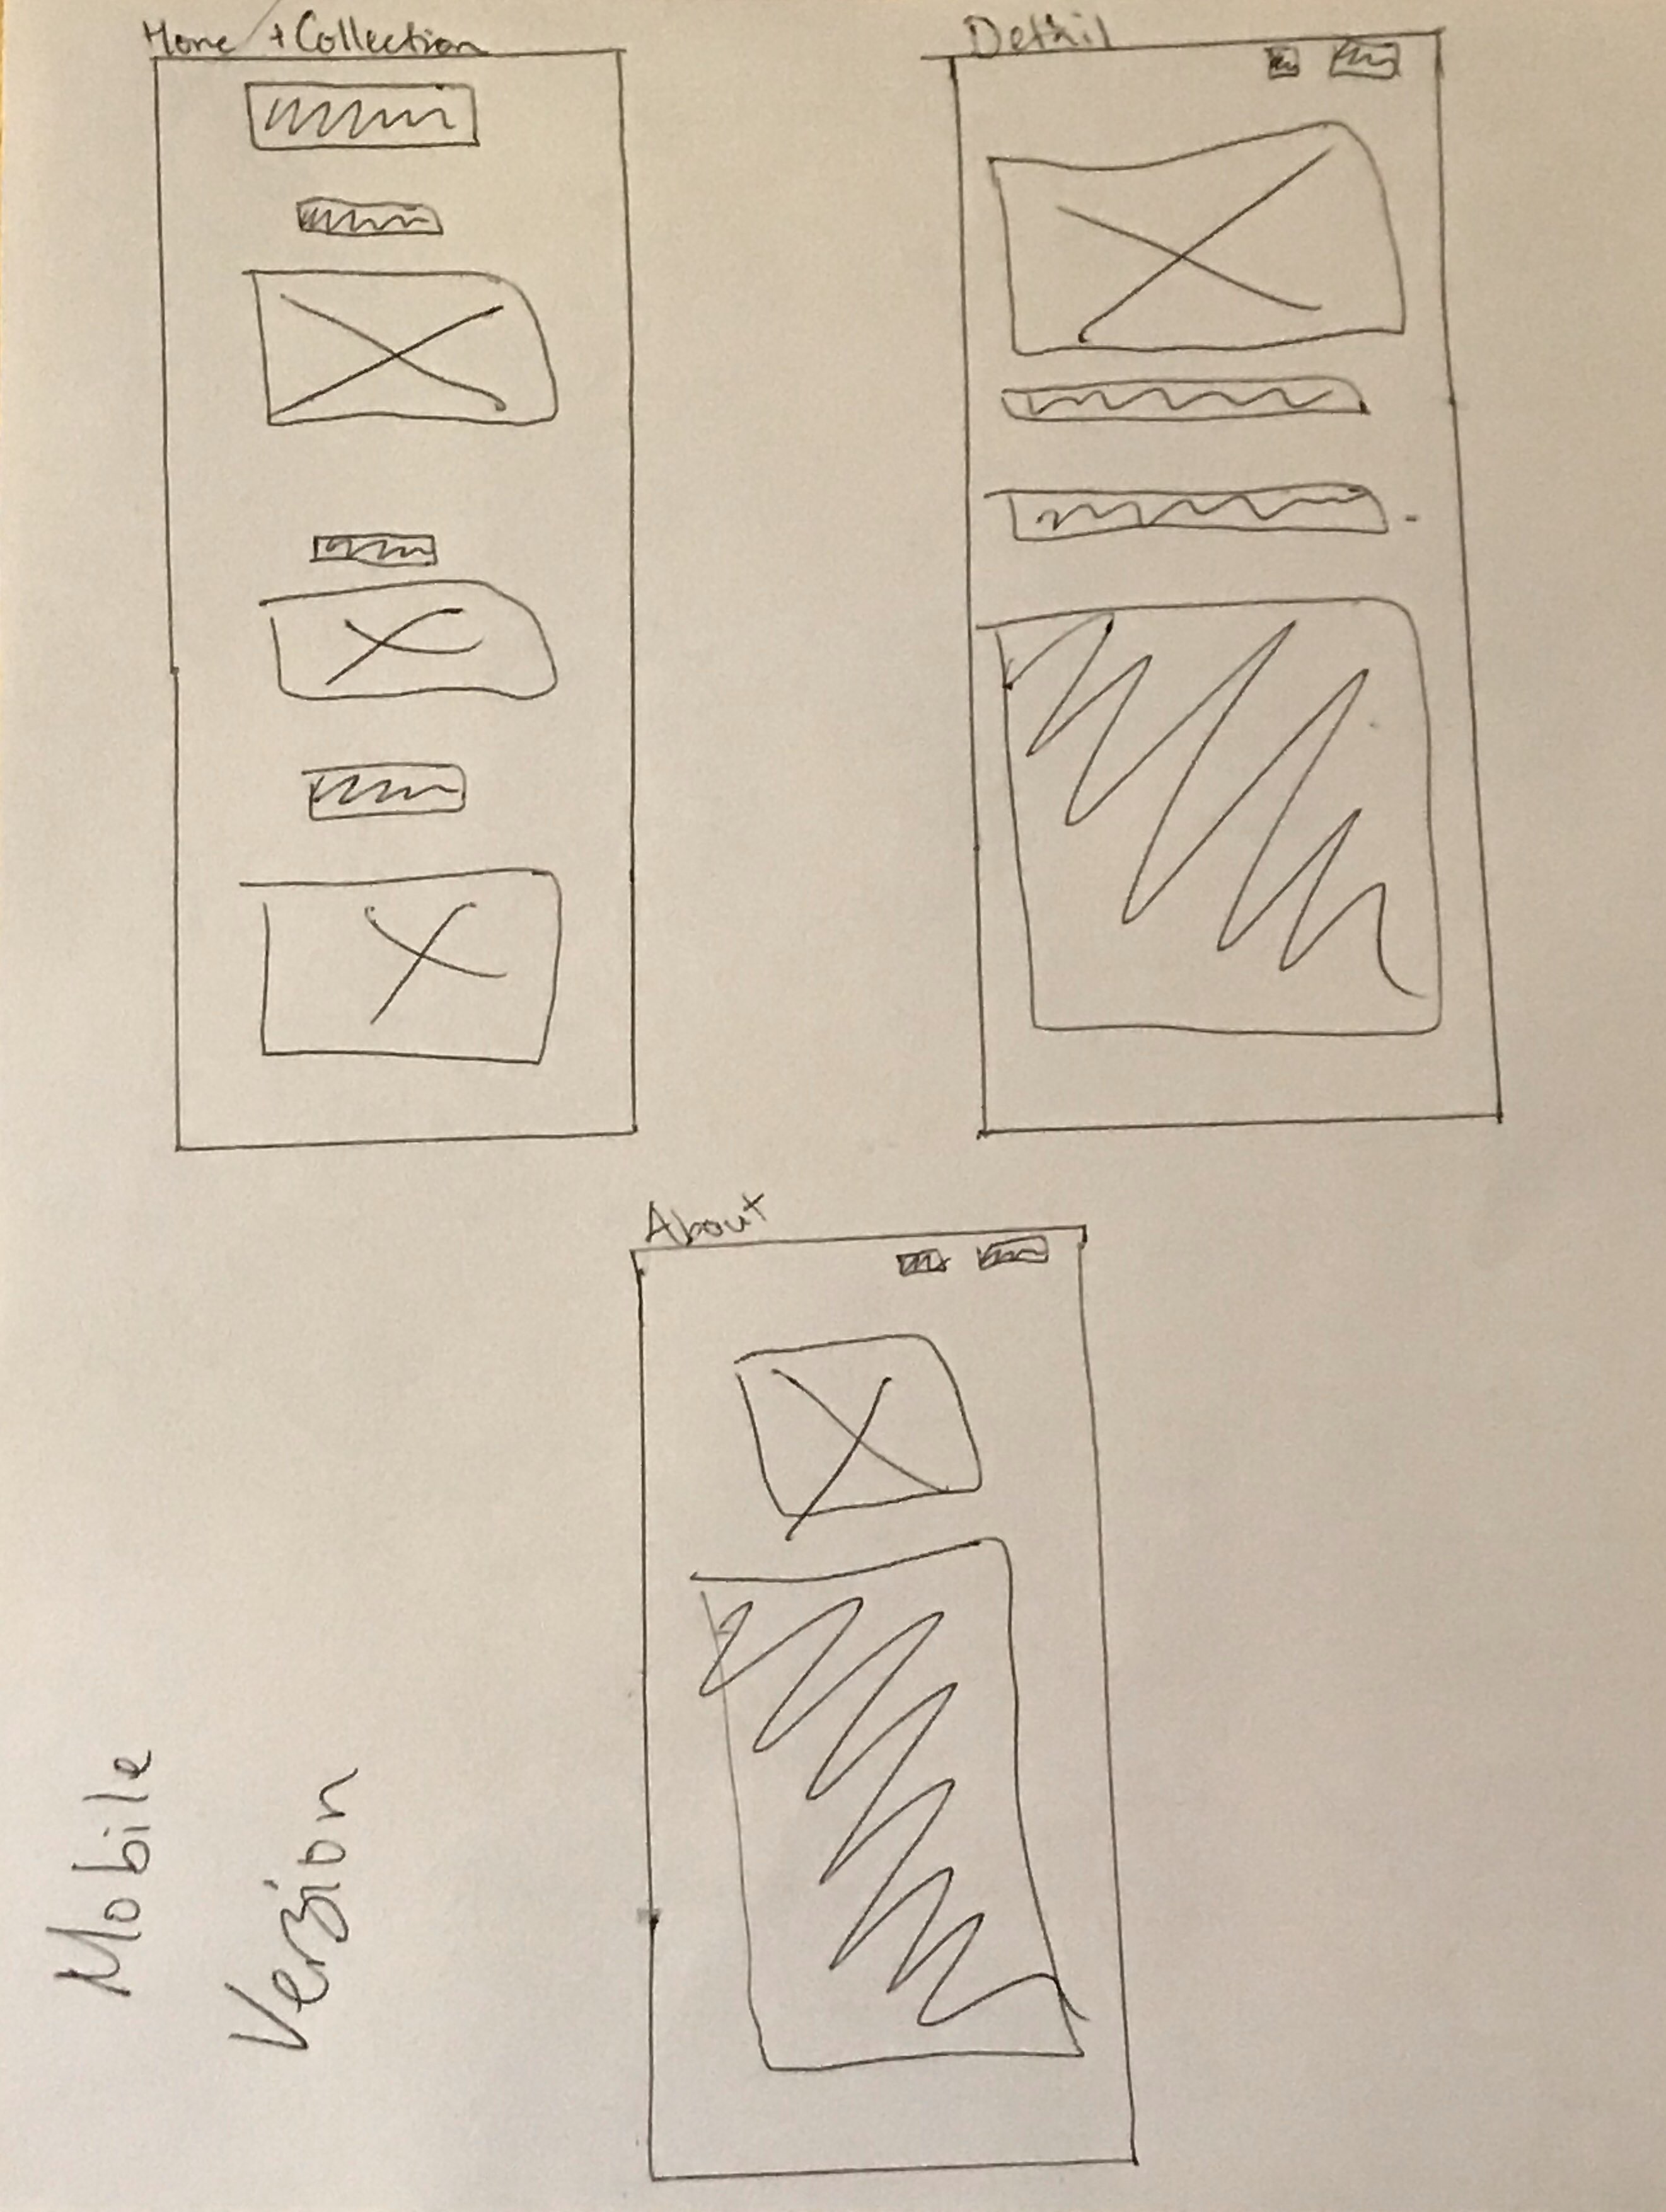 Home + Collection
Detail
About
Mobile
Version